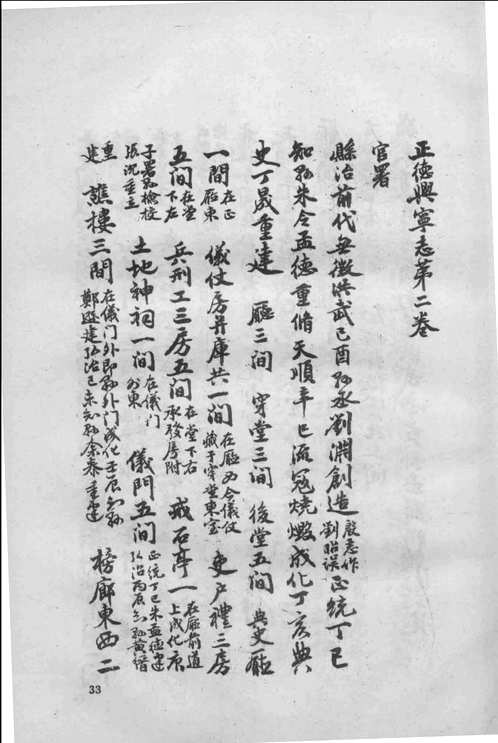 正德興寧志第二卷
官署
縣治前代無徵洪武己酉縣丞劉淵創造舊志作劉昭誤正統丁巳
知縣朱令孟德重脩天順辛巳流寇燒燬成化丁亥典
史丁晟重建　廳三間　穿堂三間　後堂五間　典史廳
一間在正廳東　儀仗房并庫共一間在廳西今儀仗藏于穿堂東室　吏戶禮三房
五間在堂下左　兵刑工三房五間在堂下右承發房附　戒石亭一在廳前道上成化庚
子署縣檢校張沈重立　土地神祠一間在儀门外東　儀門五間正統丁巳朱孟德建弘治丙辰知縣黃鐕
重建　譙樓三間在儀门外即縣外门成化壬辰知縣鄭建弘治己未知縣余泰重建　榜廊東西二
33